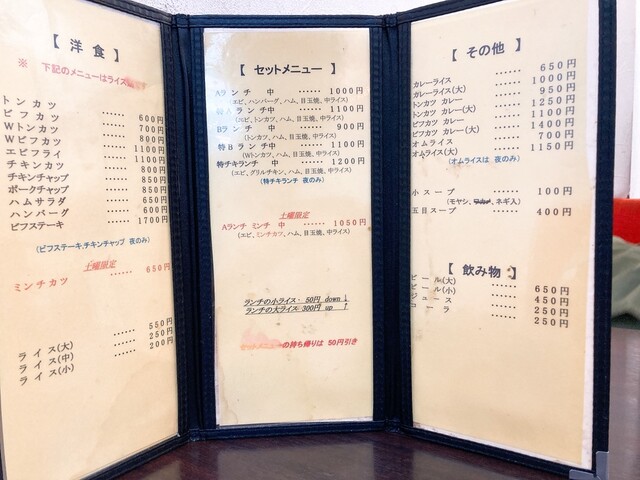 【 洋 食 】
※ 下記のメニューはライス
トンカツ ‥‥‥ 600円
ビフカツ ‥‥‥ 700円
Wトンカツ ‥‥‥ 800円
Wビフカツ ‥‥‥ 1100円
エビフライ ‥‥‥ 1100円
チキンカツ ‥‥‥ 800円
チキンチャップ ‥‥‥ 850円
ポークチャップ ‥‥‥ 850円
ハムサラダ ‥‥‥ 650円
ハンバーグ ‥‥‥ 600円
ビフステーキ ‥‥‥ 1700円
(ビフステーキ,チキンチャップ 夜のみ)
土曜限定
ミンチカツ ‥‥‥ 650円
ライス(大) ‥‥‥ 550円
ライス(中) ‥‥‥ 250円
ライス(小) ‥‥‥ 200円
【 セットメニュー 】
Aランチ 中 ‥‥‥ 1000円
(エビ、ハンバーグ、ハム、目玉焼、中ライス)
特Aランチ 中 ‥‥‥ 1100円
(エビ、トンカツ、ハム、目玉焼、中ライス)
Bランチ 中 ‥‥‥ 900円
(トンカツ、ハム、目玉焼、中ライス)
特Bランチ 中 ‥‥‥ 1100円
(Wトンカツ、ハム、目玉焼、中ライス)
特チキランチ 中 ‥‥‥ 1200円
(エビ、グリルチキン、ハム、目玉焼、中ライス)
(特チキランチ 夜のみ)
土曜限定
Aランチ ミンチ 中 ‥‥‥ 1050円
(エビ、ミンチカツ、ハム、目玉焼、中ライス)
ランチの小ライス‥50円 down↓
ランチの大ライス‥300円 up ↑
セットメニューの持ち帰りは 50円引き
【 その他 】
カレーライス ‥‥‥ 650円
カレーライス(大) ‥‥‥ 1000円
トンカツ カレー ‥‥‥ 950円
トンカツ カレー(大) ‥‥‥ 1250円
ビフカツ カレー ‥‥‥ 1100円
ビフカツ カレー(大) ‥‥‥ 1400円
オムライス ‥‥‥ 700円
オムライス(大) ‥‥‥ 1150円
(オムライスは 夜のみ)
小スープ ‥‥‥ 100円
(モヤシ、ネギ入)
五目スープ ‥‥‥ 400円
【 飲み物 】
ビール(大) ‥‥‥ 650円
ビール(小) ‥‥‥ 450円
ジュース ‥‥‥ 250円
コーラ ‥‥‥ 250円